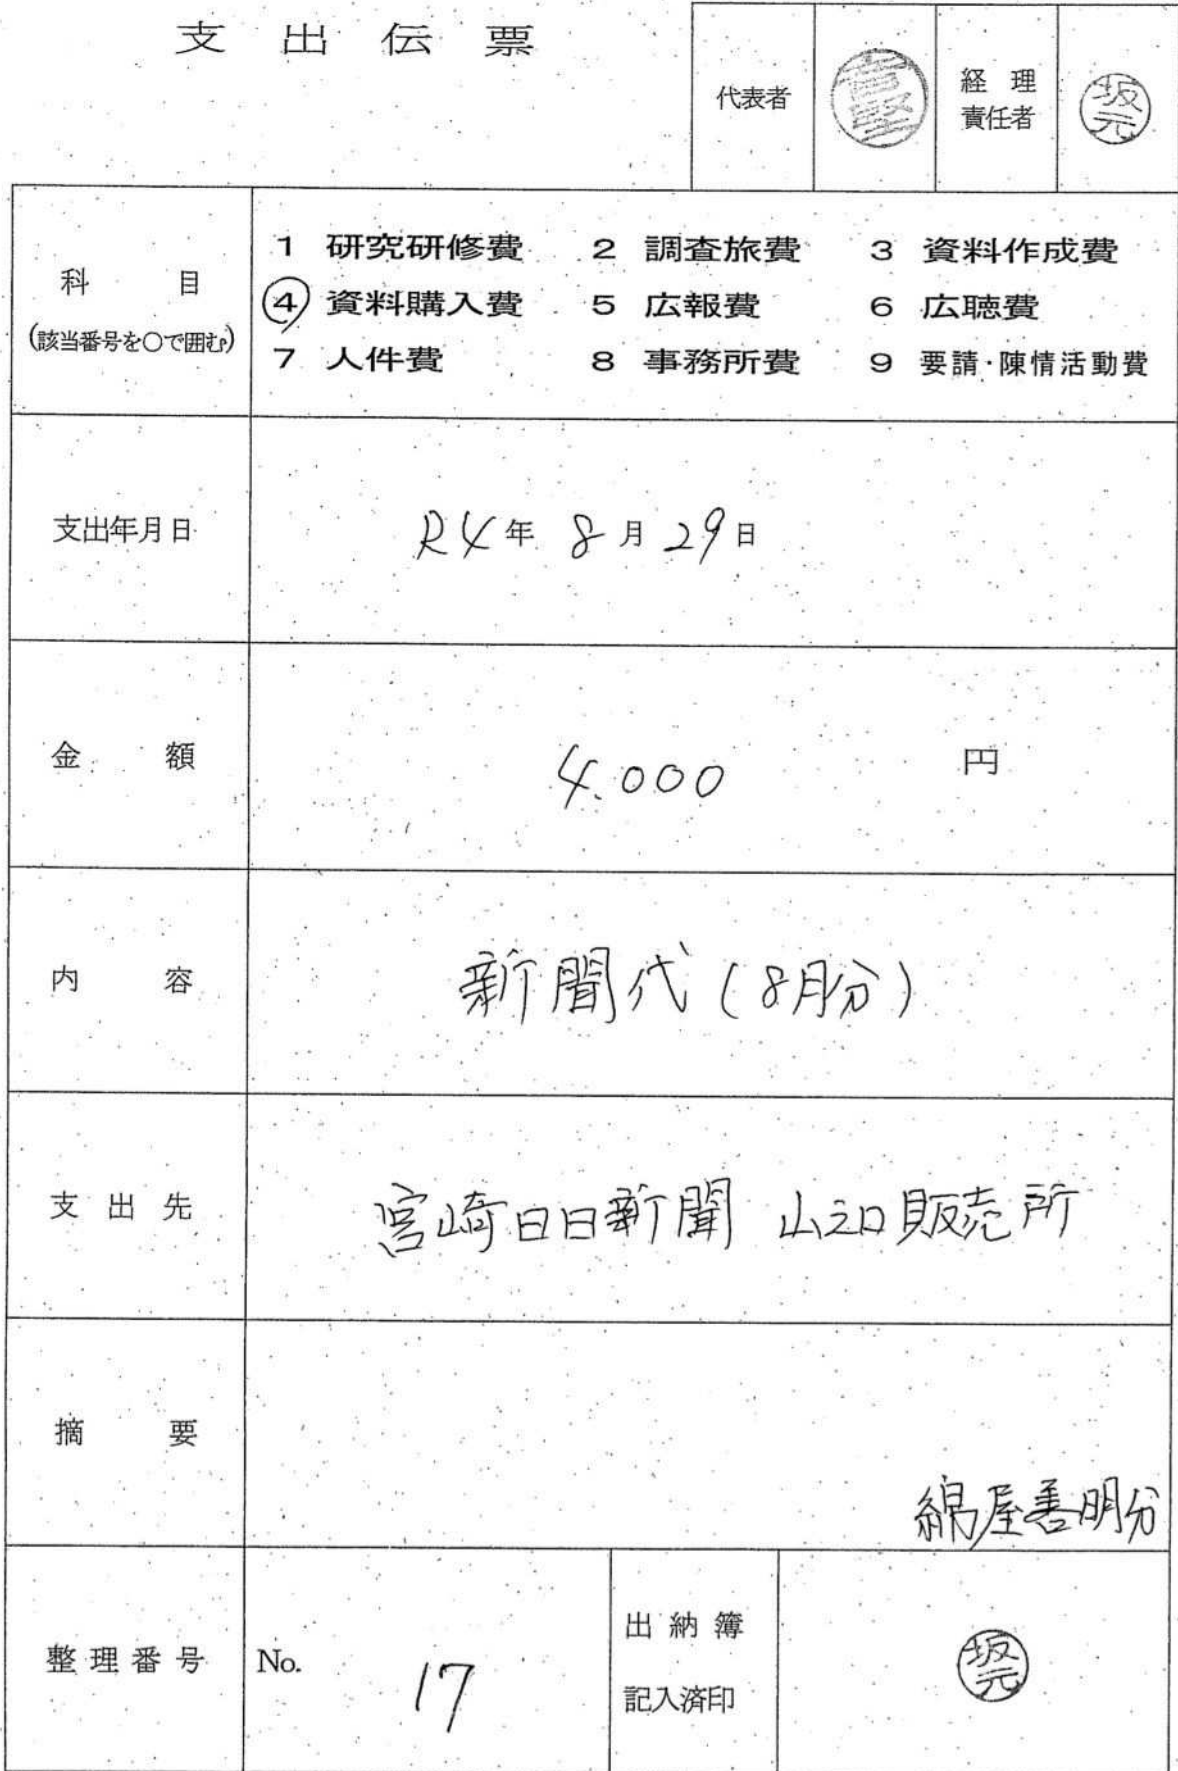 支出伝票
代表者
経理
責任者
坂元
科目
(該当番号を○で囲む)
1 研究研修費 2 調査旅費 3 資料作成費
④ 資料購入費 5 広報費 6 広聴費
7 人件費 8 事務所費 9 要請・陳情活動費
支出年月日 R4年 8月29日
金額 4.000 円
内容 新聞代(8月分)
支出先 宮崎日日新聞 山之口販売所
摘要
綿屋善明分
整理番号 No. 17
出納簿
記入済印
坂元